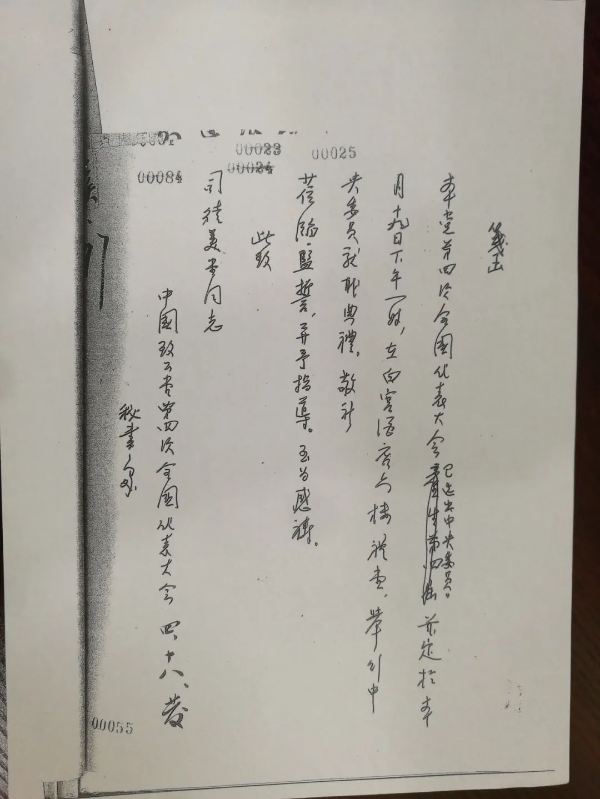 00023 00025
00084 00024
箋函
本黨第四次全國代表大會已选出中央委員，並定於本
月十九日下午一时，在白宮酒店六楼禮堂，舉行中
央委員就职典禮。敬祈
蒞臨監誓，并予指導。至为感禱。
此致
司徒美堂同志
中國致公黨第四次全國代表大會 四、十八、發
秘書
00055